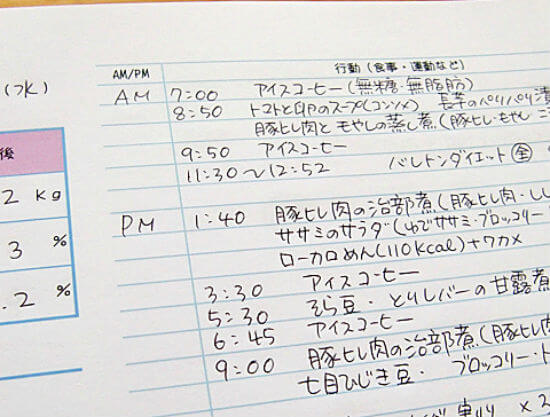 行動(食事・運動など)
AM/PM
(水)
AM 7:00 アイスコーヒー(無糖・無脂肪)
8:50 トマトと卵のスープ(コンソメ) 長芋のパリパリ漬
豚ヒレ肉ともやしの蒸し煮(豚ヒレ・もやし
9:50 アイスコーヒー
11:30~12:52 バレトンダイエット 全
後
2 kg
3 %
.2 %
PM 1:40 豚ヒレ肉の治部煮(豚ヒレ肉・しし
ササミのサラダ(ゆでササミ・ブロッコリー
ローカロめん(110kcal)+ワカメ
3:30 アイスコーヒー
5:30 そら豆・とりレバーの甘露煮
6:45 アイスコーヒー
9:00 豚ヒレ肉の治部煮(豚ヒレ肉
七目ひじき豆・ ブロッコリー・ト
×2